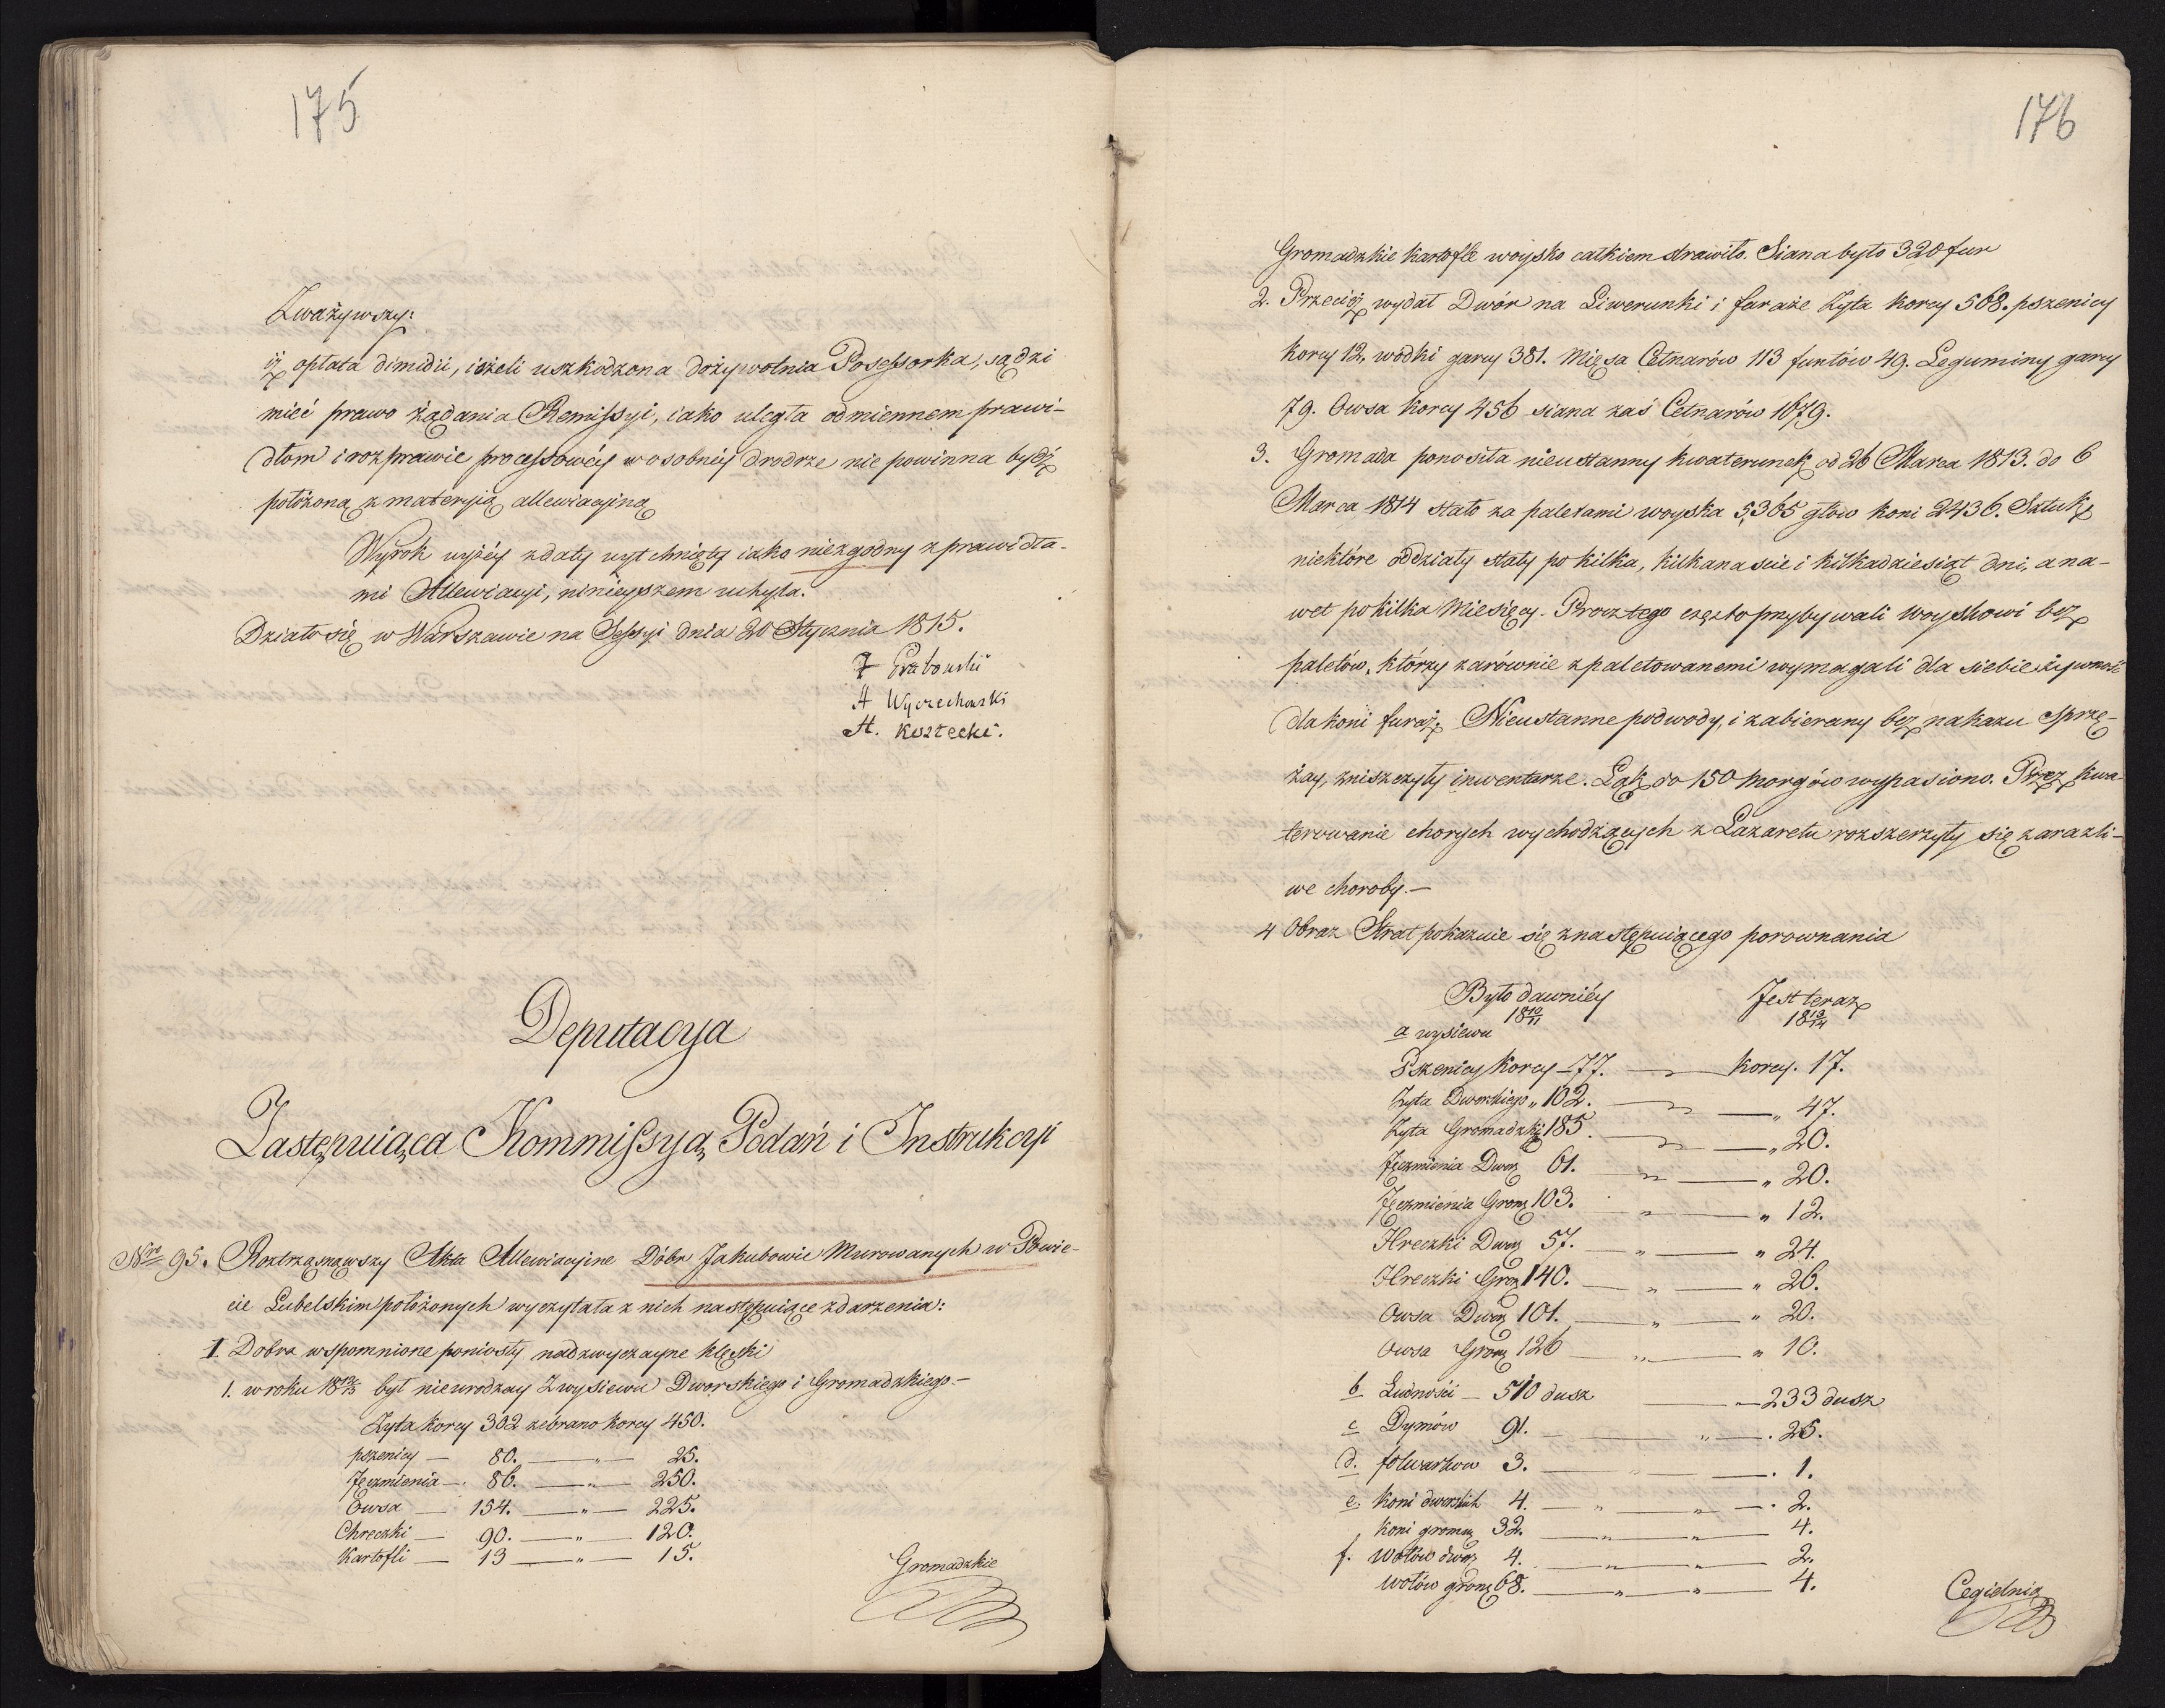 175
Zważywszy:
iż opłata dimidii, ieżeli uszkodzona dożywotnia Possessorka, sądzi
mieć prawo żądania Remissyi, iako uległa odmiennem prawi-
dłom i rozprawie processowéy w osobnéy drodrze nie powinna bydź
połóżoną z materyią allewiacyiną
Wyrok wyżéy zdały wytchnięty iako niezgodny z prawidła-
mi Allewiacyi, ninieyszem uchyla.
Działo się w Warszawie na Sessyi dnia 20 Stycznia 1815.
F Grabowski
A Wyczechowski
A. Kosztecki.
Deputacya
Zastępuiąca Kommissyą Podań i Instrukcyi
Nro 95. Roztrząsnąwszy Akta Allewiacyine Dóbr Jakubowic Murowanych w Powie-
cie Lubelskim położonych wyczytała z nich następuiące zdarzenia:
I Dobra wspomnione poniosły nadzwyczayne klęski
1. w roku 1812/13 był nieurodzay Z wysiewu Dworskiego i Gromadzkiego. —
Zyta korcy 302 zebrano korcy 450.
pszenicy — 80. — „ — 25.
Jęczmienia — 86. — „ — 250.
Owsa — 154. — „ — 225.
Chreczki — 90. — „ — 120.
Kartofli — 13 — „ — 15.
Gromadzkie
176
Gromadzkie kartofle woysko całkiem strawiło. Siana było 320 fur
2. Przecież wydał Dwór na Liwerunki i furaże Zyta korcy 568. pszenicy
korcy 12, wódki garcy 381. Mięsa Cetnarów 113 funtów 49. Leguminy garcy
79. Owsa korcy 456 siana zaś Cetnarów 1679.
3. Gromada ponosiła nieustanny kwaterunek od 26 Marca 1813. do 6
Marca 1814 stało za paletami woyska 5,365 głow koni 2436. Sztuk,
niektóre oddziały stały po kilka, kilkanaście i kilkadziesiąt dni, a na-
wet po kilka Miesięcy. Procz tego często przybywali woyskowi bez
paletów, którzy zarównie z paletowanemi wymagali dla siebie żywność
dla koni furaż. Nieustanne podwody, i zabierany bez nakazu sprzę-
żay, zniszczyły inwentarze. Łąk do 150 morgów wypasiono. Przez kwa-
terowanie chorych wychodzących z Lazaretu rozszerzyły się zaraźli-
we choroby. —
4 Obraz Strat pokazuie się z następuiącego porownania
Było dawniéy Jest teraz
1810/11 1813/14
a wysiewu
Pszenicy korcy — 77. — korcy. 17.
Zyta Dworskiego „ 102. — „ 47.
Zyta Gromadzki 185. — „ 20.
Jęczmienia Dwor 61. — „ 20.
Jęczmienia Grom 103. — „ — „ 12.
Hreczki Dwor 57. — „ — „ 24.
Hreczki Grom 140. — „ — „ 26.
Owsa Dwor 101. — „ — „ 20.
Owsa Grom 126 — „ — „ 10.
b Ludności — 510 dusz — „ — 233 dusz
c Dymów 91. — „ — . 25.
d. folwarkow 3. — „ — . 1.
e. Koni dworskich 4. — „ — „ — . 2.
Koni grom 32. — „ — „ — 4.
f. Wołów dwor 4. — „ — „ — 2.
Wołów grom 68. — „ — „ — 4.
Cegielnia